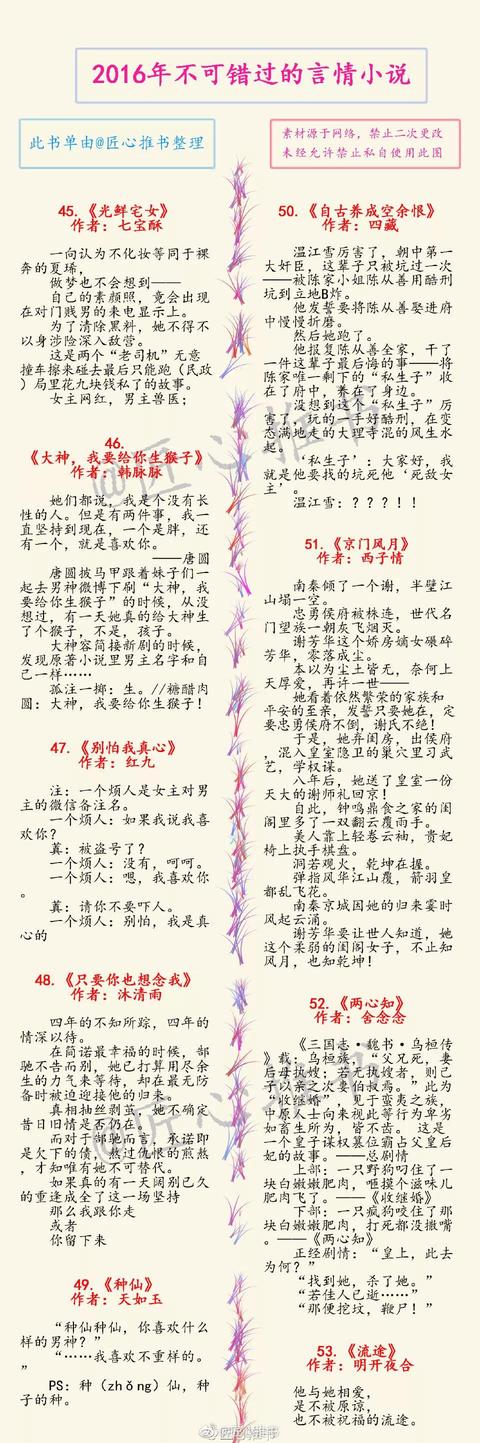 2016年不可错过的言情小说
此书单由@匠心推书整理
素材源于网络，禁止二次更改
未经允许禁止私自使用此图
45.《光鲜宅女》
作者：七宝酥
一向认为不化妆等同于裸
奔的夏琋，
做梦也不会想到——
自己的素颜照，竟会出现
在对门贱男的来电显示上。
为了清除黑料，她不得不
以身涉险深入敌营。
这是两个“老司机”无意
撞车擦来碰去最后只能跑（民政
）局里花九块钱私了的故事。
女主网红，男主兽医；
46.
《大神，我要给你生猴子》
作者：韩脉脉
她们都说，我是个没有长
性的人。但是有两件事，我一
直坚持到现在，一个是胖，还
有一个，就是喜欢你。
——唐圆
唐圆披马甲跟着妹子们一
起去男神微博下刷“大神，我
要给你生猴子”的时候，从没
想过，有一天她真的给大神生
了个猴子，不是，孩子。
大神容简接新剧的时候，
发现原著小说里男主名字和自
己一样……
孤注一掷：生。//糖醋肉
圆：大神，我要给你生猴子！
47.《别怕我真心》
作者：红九
注：一个烦人是女主对男
主的微信备注名。
一个烦人：如果我说我喜
欢你？
黄：被盗号了？
一个烦人：没有，呵呵。
一个烦人：嗯，我喜欢你
。
黄：请你不要吓人。
一个烦人：别怕，我是真
心的
48.《只要你也想念我》
作者：沐清雨
四年的不知所踪，四年的
情深以待。
在简诺最幸福的时候，郜
驰不告而别，她已打算用尽余
生的力气来等待，却在最无防
备时被迫迎接他的归来。
真相抽丝剥茧，她不确定
昔日旧情是否仍在。
而对于郜驰而言，承诺即
是欠下的债，熬过仇恨的煎熬
，才知唯有她不可替代。
如果真的有一天阔别已久
的重逢成全了这一场坚持
那么我跟你走
或者
你留下来
49.《种仙》
作者：天如玉
“种仙种仙，你喜欢什么
样的男神？”
“……我喜欢不重样的。
”
PS：种（zhǒng）仙，种
子的种。
50.《自古养成空余恨》
作者：四藏
温江雪厉害了，朝中第一
大奸臣，这辈子只被坑过一次
——被陈家小姐陈从善用酷刑
坑到立地B炸。
他发誓要将陈从善娶进府
中慢慢折磨。
然后她跑了。
他报复陈从善全家，干了
一件这辈子最后悔的事——将
陈家唯一剩下的“私生子”收
在了府中，养在了身边。
没想到这个“私生子”厉
害了，玩的一手好酷刑，在变
态满地走的大理寺混的风生水
起。
‘私生子’：大家好，我
就是他要找的坑死他‘死敌女
主’。
温江雪：？？？！！
51.《京门风月》
作者：西子情
南秦倾了一个谢，半壁江
山塌一空。
忠勇侯府被株连，世代名
门望族一朝灰飞烟灭。
谢芳华这个娇房嫡女碾碎
芳华，零落成尘。
本以为尘土皆无，奈何上
天厚爱，再许一世——
她看着依然繁荣的家族和
平安的至亲，发誓只要她在，定
要忠勇侯府不倒，谢氏不绝！
于是，她弃闺房，出侯府
，混入皇室隐卫的巢穴里习武
艺，学权谋。
八年后，她送了皇室一份
天大的谢师礼回京！
自此，钟鸣鼎食之家的闺
阁里多了一双翻云覆雨手。
美人靠上轻卷云袖，贵妃
椅上执手棋盘。
洞若观火，乾坤在握。
弹指风华江山覆，箭羽皇
都乱飞花。
南秦京城因她的归来霎时
风起云涌。
谢芳华要让世人知道，她
这个柔弱的闺阁女子，不止知
风月，也知乾坤！
52.《两心知》
作者：舍念念
《三国志·魏书·乌桓传
》载：乌桓族，“父兄死，妻
后母执嫂；若无执嫂者，则己
子以亲之次妻伯叔焉。”此为
“收继婚”，见于蛮夷之族，
中原人士向来视此等行为卑劣
如畜生所为，皆不齿。 这是
一个皇子谋权篡位霸占父皇后
妃的故事。——总剧情
上部：一只野狗叼住了一
块白嫩嫩肥肉，咂摸个滋味儿
肥肉飞了。——《收继婚》
下部：一只疯狗咬住了那
块白嫩嫩肥肉，打死都没撒嘴
。——《两心知》
正经剧情：“皇上，此去
为何？”
“找到她，杀了她。”
“若佳人已逝……”
“那便挖坟，鞭尸！”
53.《流途》
作者：明开夜合
他与她相爱，
是不被原谅，
也不被祝福的流途。
@匠心推书
@匠心推书
@匠心推书